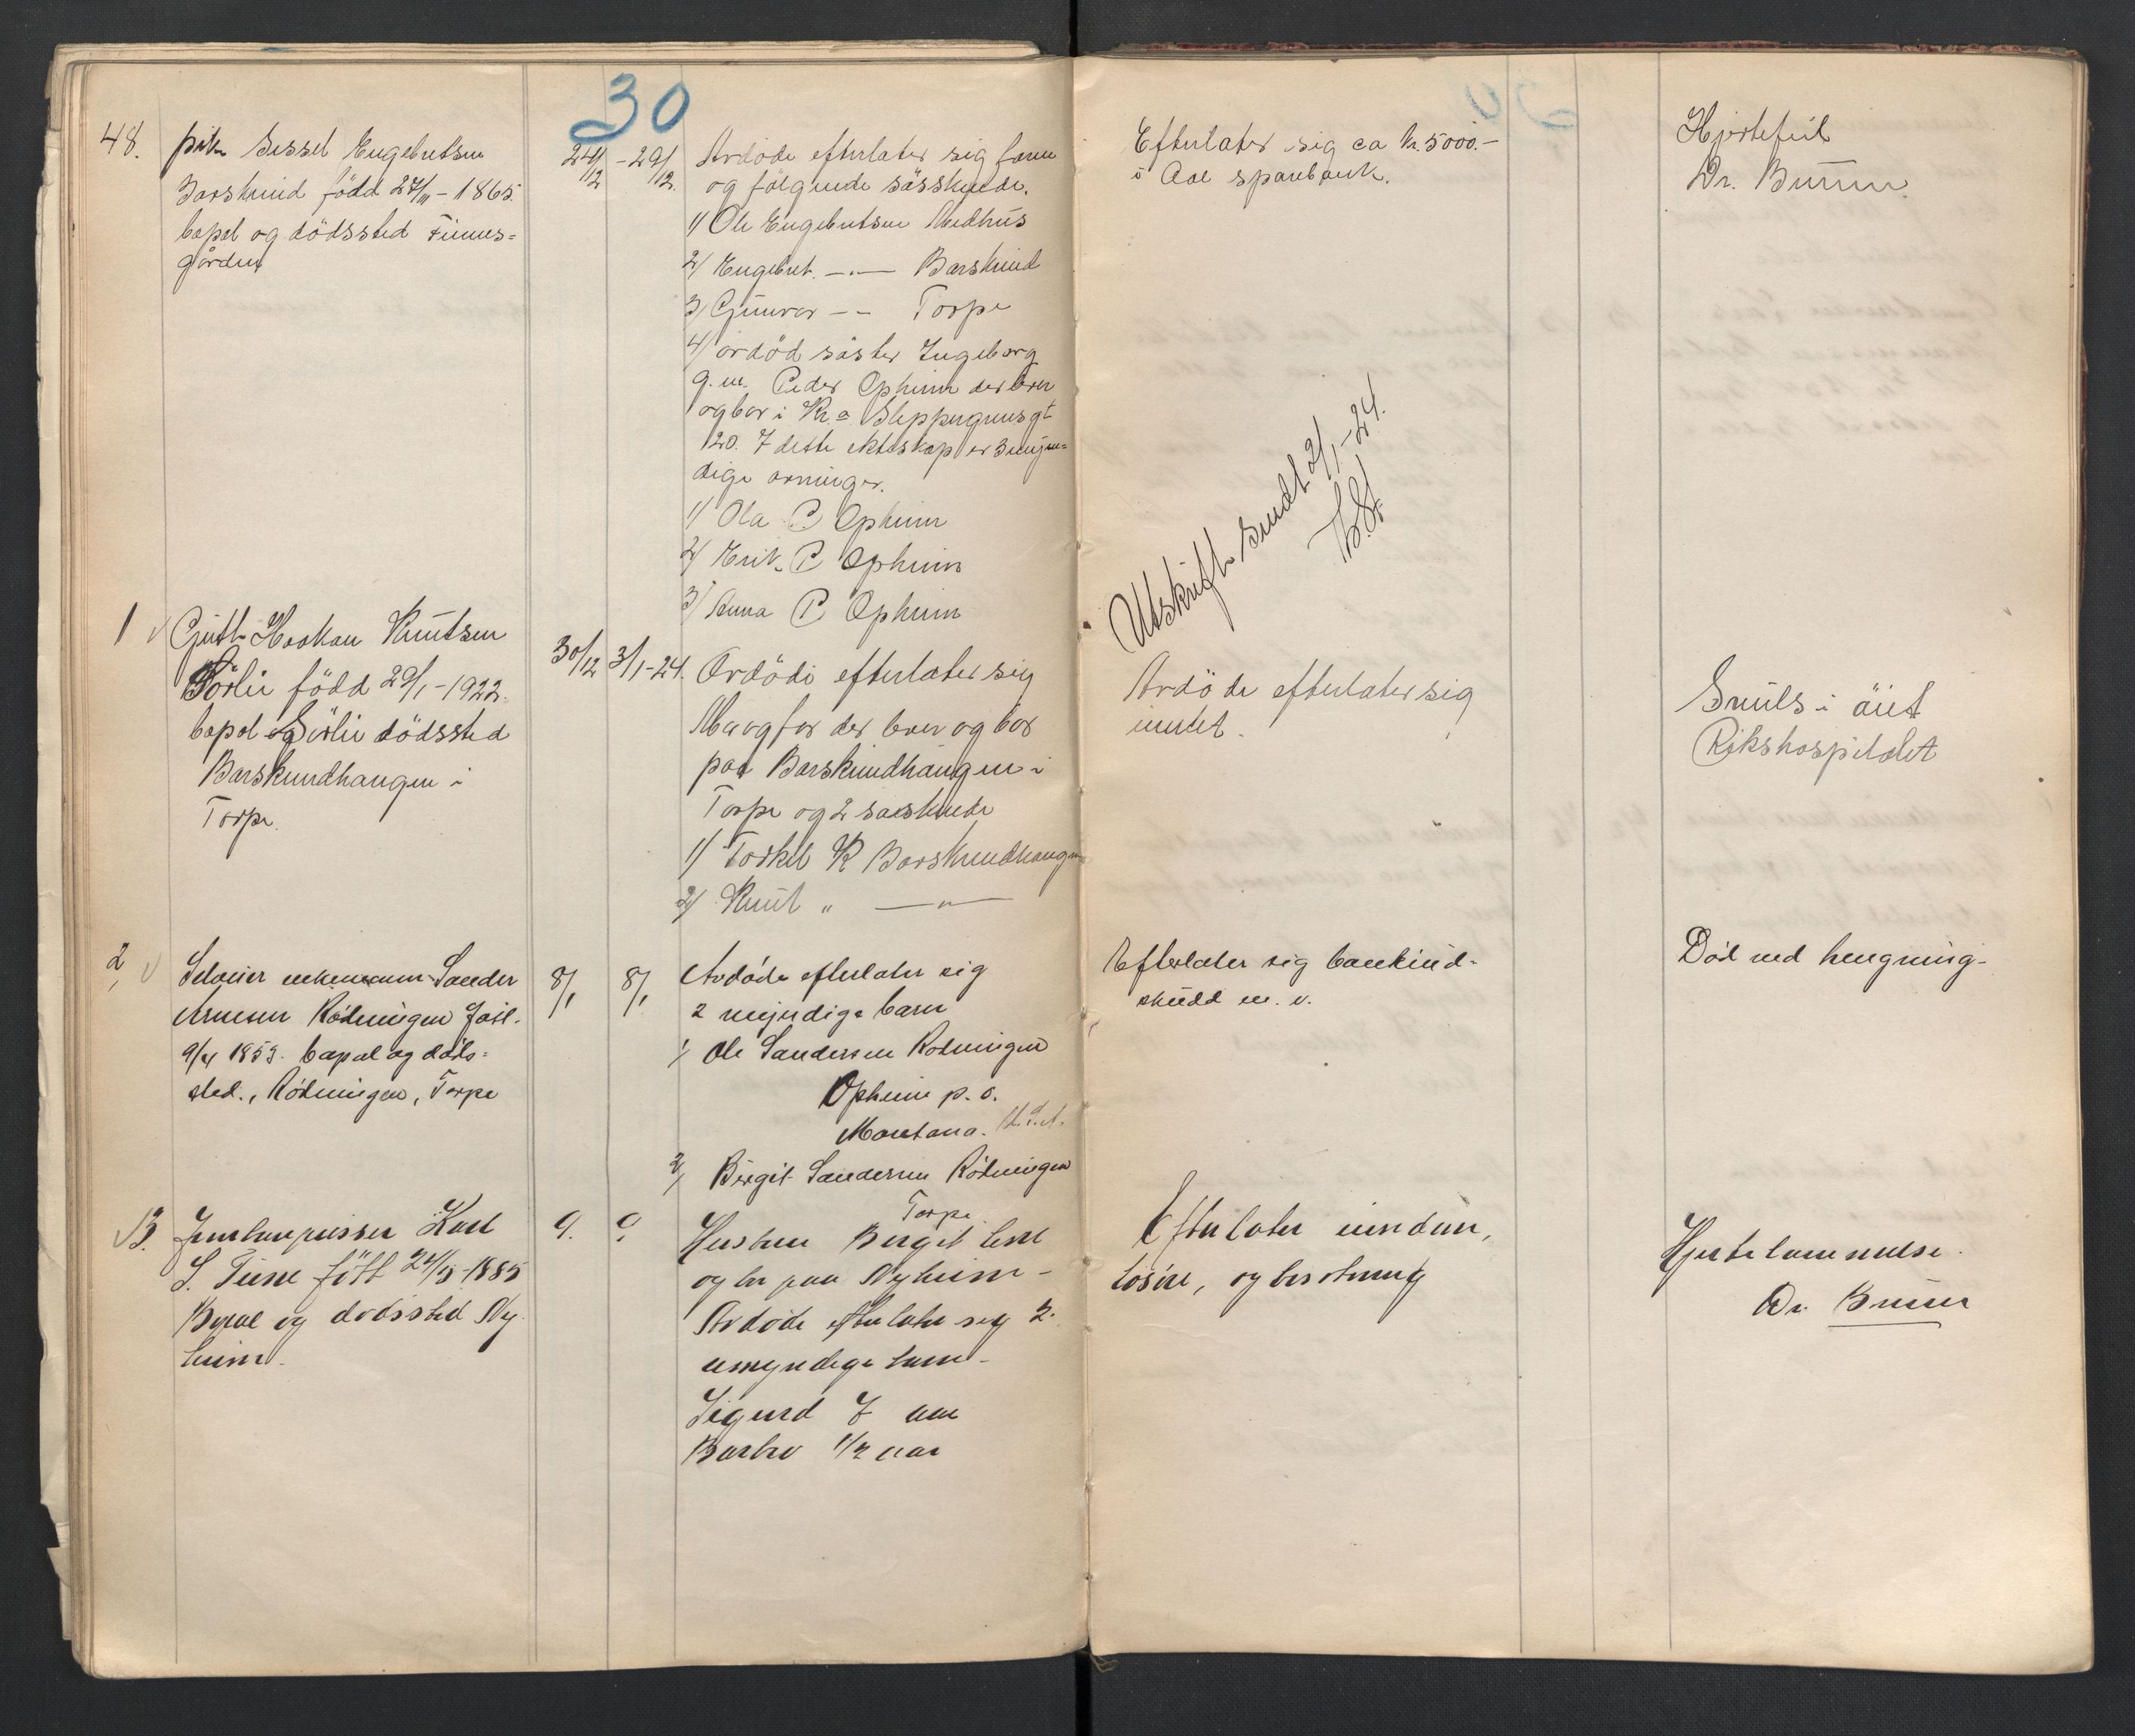 30
48.
pike Sissel Engebretsen
Barskrind född 27/11 - 1865.
bopel og dödssted Finnes=
gården
24/12 - 29/12.
Avdöde efterlater sig
og følgende søsskende.
1/ Ole Engebretsen Medhus
2/ Engebret. -"- Barskrind
3/ Gunvor - - Torpe
4/ avdöd söster Ingeborg
g.m. Peder Opheim der lever
og bor i Kr.a Sleppegrensgt
120. I dette ekteskap er 3 mÿn=
dige arvinger.
1/ Ola P Opheim
2/ Erik P Opheim
3/ Anna P Opheim
Efterlater sig ca kr. 5000.-
i Aal sparebank.
Utskrift sendt 2/1-24.
Hjertefeil
Dr. Bruun.
1
Gutt Haakon Knutsen
Sörlie född 29/1 - 1922.
bopel Sörlie dödssted
Barskrindhaugen i
Torpe.
30/12 3/1-24.
Avdöde efterlater sig
Mor og far der lever og bor
paa Barskrindhaugen i
Torpe og 2 søskende
1/ Torkel K Barskrindhaugen
2/ Knut " -"-
Avdöde efterlater sig
intet.
Svuls i öiet
Rikshospitalet
2,
Selveier enkemann Sander
Arnesen Rödningen född
9/4 1853. bopæl og döds=
sted., Rödningen, Torpe
8/1 8/1
Avdöde efterlater sig
2 mÿndige barn
1/ Ole Sandersen Rödningen
Opheim p. o.
Montana. U.S.A.
2/ Birgit Sandersen Rödningen
Torpe.
Efterlater sig bankind-
skudd m. v.
Död ved hengning.
3.
Jernbanevisser Karl
S. Tune fött 24/9-1885
Bopæl og dödssted Ny
heim.
9. 9
Hustru Birgit Tune
og bor paa Nyheim -
Avdöde efterlater sig 2.
umyndige barn -
Sigurd 7 aar
Barbro 1/2 aar
Efterlater eiendom,
lösöre, og besetning
Hjertelammelse.
Dr. Bruun